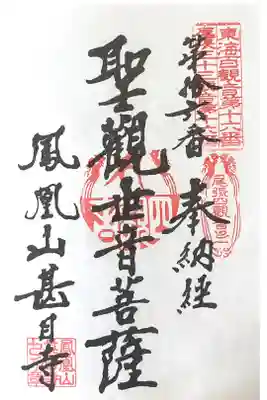 第拾六番
奉納経
聖觀世音菩薩
鳳凰山甚目寺
東海百觀音第十六番
尾張四觀音之一
鳳凰山